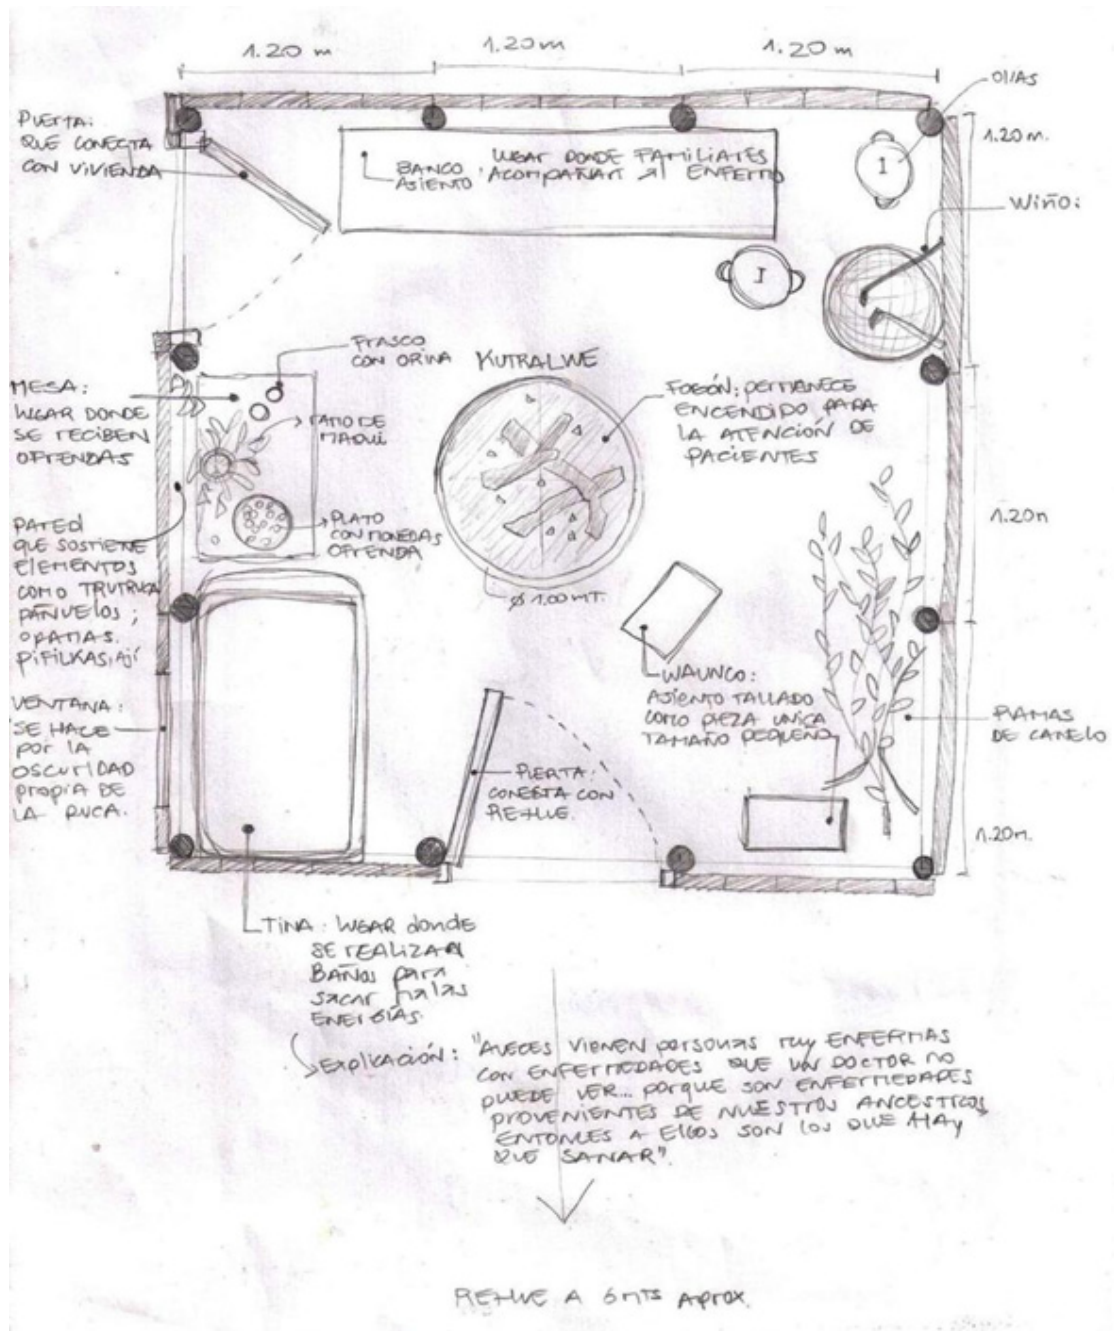 1.20 m
1.20 m
1.20 m
OllAS
1.20 m.
PUERTA:
QUE CONECTA
CON VIVIENDA
BANCO
ASIENTO
LUGAR DONDE FAMILIARES
ACOMPAÑAN AL ENFERMO
WIÑO:
FRASCO
CON ORINA
KUTRALWE
MESA:
LUGAR DONDE
SE RECIBEN
OFRENDAS
RAMO DE
MAQUI
FOGÓN: PERMANECE
ENCENDIDO PARA
LA ATENCIÓN DE
PACIENTES
PLATO
CON MONEDAS
OFRENDA
PARED:
QUE SOSTIENE
ELEMENTOS
COMO TRUTRUCA
PAÑUELOS;
PIFILKAS, AJÍ
1.20m
Ø 1.00 MT.
WAUNCO:
ASIENTO TALLADO
COMO PIEZA UNICA
TAMAÑO PEQUEÑO
VENTANA:
SE HACE
POR LA
OSCURIDAD
PROPIA DE
LA RUCA.
RAMAS
DE CANELO
PUERTA:
CONECTA CON
REHUE.
1.20m.
TINA: LUGAR donde
SE REALIZAN
BAÑOS para
sacar malas
ENERGÍAS.
Explicación:
"AVECES VIENEN personas muy ENFERMAS
CON ENFERMEDADES QUE UN DOCTOR NO
PUEDE VER... PORQUE SON ENFERMEDADES
PROVENIENTES DE NUESTROS ANCESTROS,
ENTONCES A ELLOS SON LOS QUE HAY
QUE SANAR".
REHUE A 6 mTS Aprox.